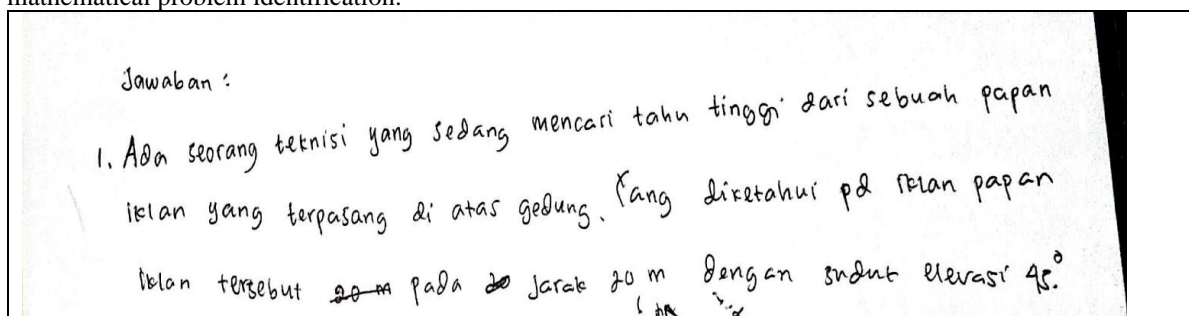 mathematical problem identification.
Jawaban :
1. Ada seorang teknisi yang sedang mencari tahu tinggi dari sebuah papan
iklan yang terpasang di atas gedung. Yang diketahui pd iklan papan
Iklan tersebut 20 m pada jarak 20 m dengan sudut elevasi 45.°